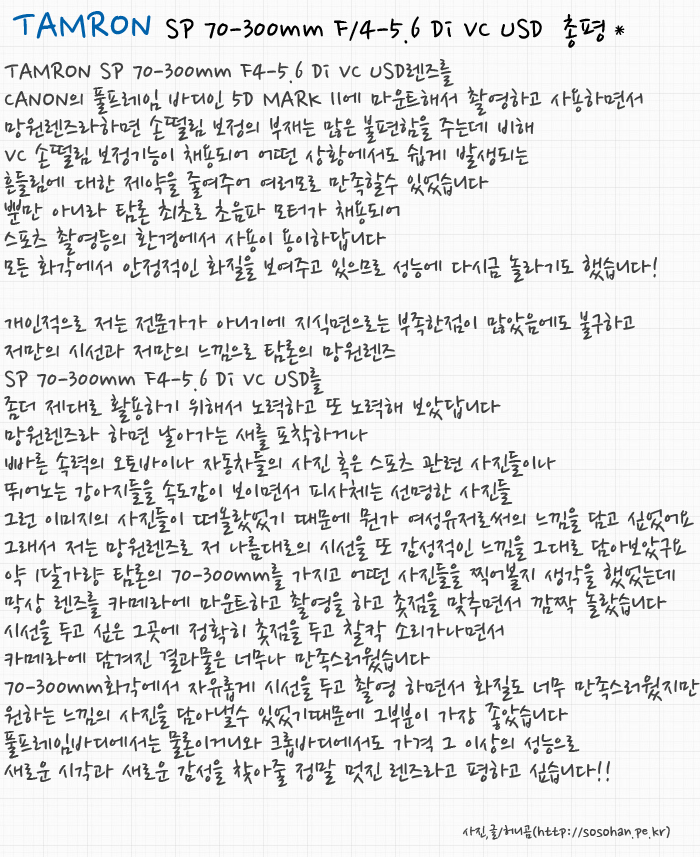 TAMRON SP 70-300mm F/4-5.6 Di VC USD 총평 *
TAMRON SP 70-300mm F4-5.6 Di VC USD렌즈를
CANON의 풀프레임 바디인 5D MARK II에 마운트해서 촬영하고 사용하면서
망원렌즈라하면 손떨림 보정의 부재는 많은 불편함을 주는데 비해
VC 손떨림 보정기능이 채용되어 어떤 상황에서도 쉽게 발생되는
흔들림에 대한 제약을 줄여주어 여러모로 만족할수 있었습니다
뿐만 아니라 탐론 최초로 초음파 모터가 채용되어
스포츠 촬영등의 환경에서 사용이 용이하답니다
모든 화각에서 안정적인 화질을 보여주고 있으므로 성능에 다시금 놀라기도 했습니다!
개인적으로 저는 전문가가 아니기에 지식면으로는 부족한점이 많았음에도 불구하고
저만의 시선과 저만의 느낌으로 탐론의 망원렌즈
SP 70-300mm F4-5.6 Di VC USD를
좀더 제대로 활용하기 위해서 노력하고 또 노력해 보았답니다
망원렌즈라 하면 날아가는 새를 포착하거나
빠른 속력의 오토바이나 자동차들의 사진 혹은 스포츠 관련 사진들이나
뛰어노는 강아지들을 속도감이 보이면서 피사체는 선명한 사진들
그런 이미지의 사진들이 떠올랐었기 때문에 뭔가 여성유저로써의 느낌을 담고 싶었어요
그래서 저는 망원렌즈로 저 나름대로의 시선을 또 감성적인 느낌을 그대로 담아보았구요
약 1달가량 탐론의 70-300mm를 가지고 어떤 사진들을 찍어볼지 생각을 했었는데
막상 렌즈를 카메라에 마운트하고 촬영을 하고 촛점을 맞추면서 깜짝 놀랐습니다
시선을 두고 싶은 그곳에 정확히 촛점을 두고 찰칵 소리가나면서
카메라에 담겨진 결과물은 너무나 만족스러웠습니다
70-300mm화각에서 자유롭게 시선을 두고 촬영 하면서 화질도 너무 만족스러웠지만
원하는 느낌의 사진을 담아낼수 있었기때문에 그부분이 가장 좋았습니다
풀프레임바디에서는 물론이거니와 크롭바디에서도 가격 그 이상의 성능으로
새로운 시각과 새로운 감성을 찾아줄 정말 멋진 렌즈라고 평하고 싶습니다!!
사진,글/허니곰(http://sosohan.pe.kr)